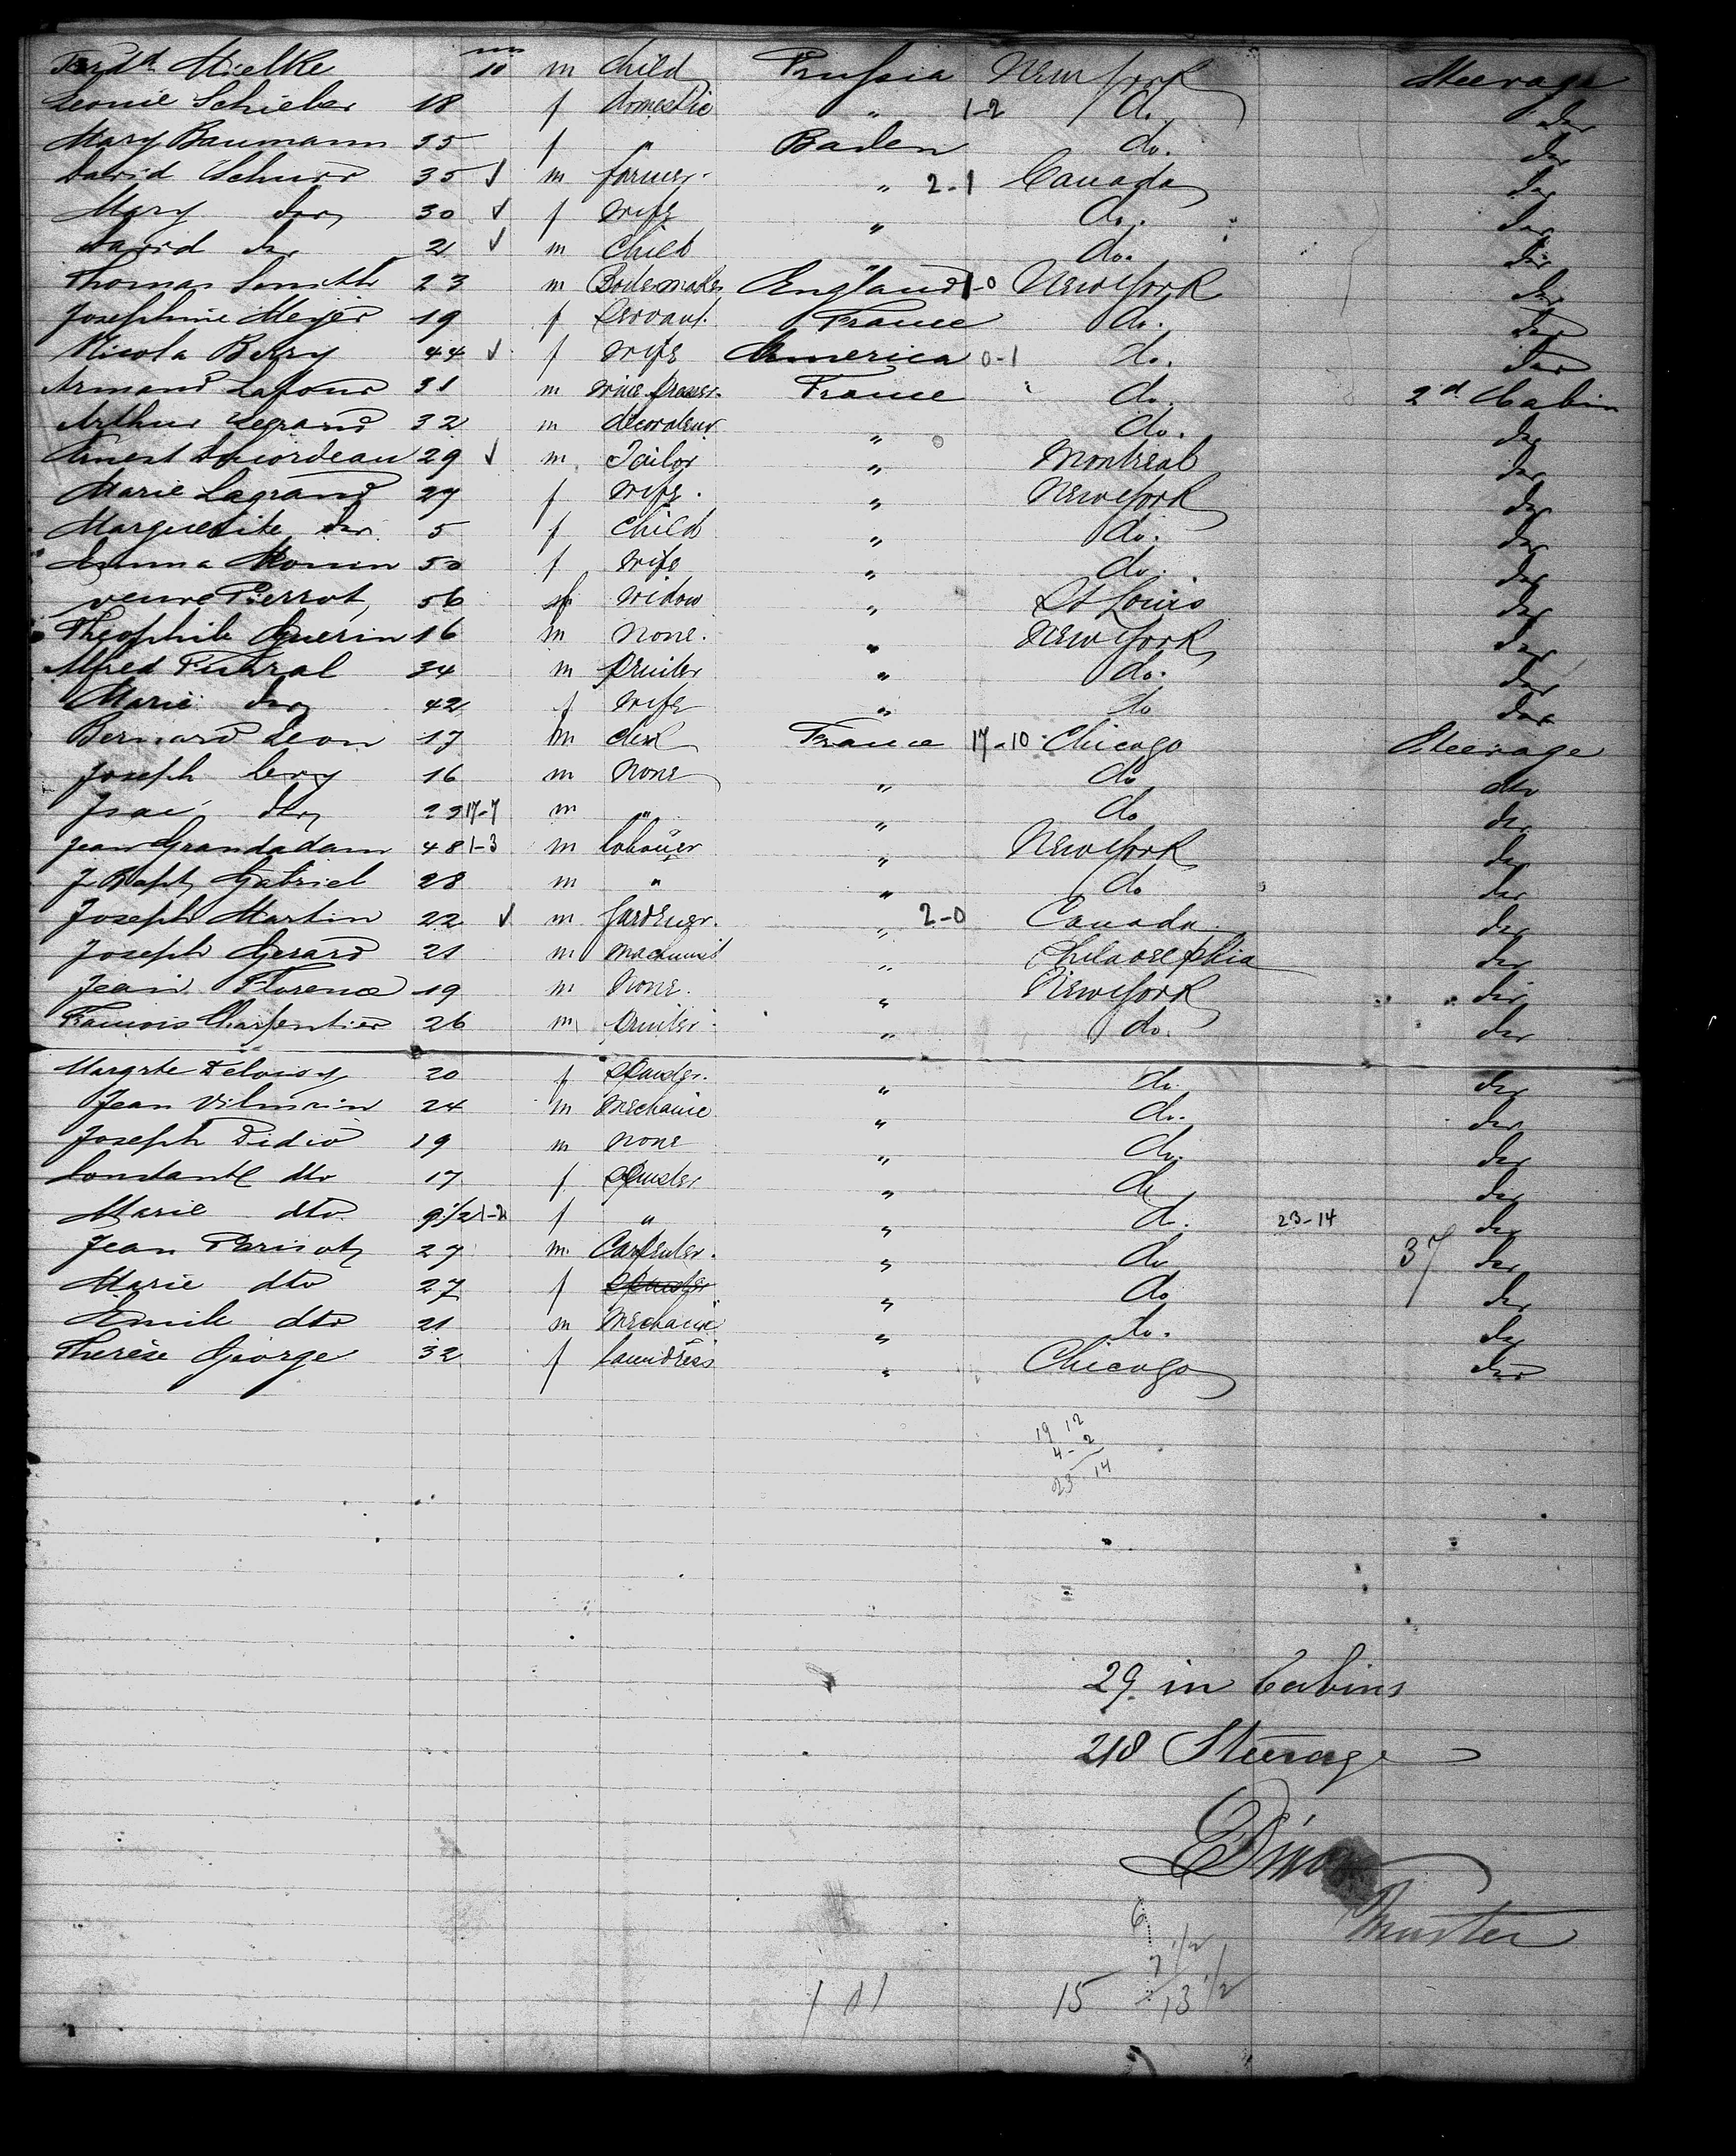 Ferdd. Mielke 10 m Child Prussia New York Steerage
Leonie Schieber 18 f domestic " 1-2 do. do
Mary Baumann 35 f " Baden do. do
David Schurr 35 √ m farmer. " 2-1 Canada do
Mary do 30 √ f wife " do. do
David do 2 √ m Child " do. do
Thomas Smith 23 m England 1-0 New York do
Josephine Meyer 19 f Servant. France do. do
Nicola Berry 44 √ f wife America 0-1 do. do
Armand Lafour 31 m France do. 2d. Cabin
Arthur Legrand 32 m decorateur " do. do
Ernest 29 √ m. Tailor " Montreal do
Marie Lagrand 27 f wife. " New York do
Marguerite do 5 f Child " do. do
Emma Monin 50 f wife " do. do
veuve Pierrot 56 f widow " St Louis do
Theophile Guerin 16 m none. " New York do
Alfred 34 m Printer " do. do
Marie do 42 f wife " do do
Bernard Leon 17 m France 17-10 Chicago Steerage
Joseph Levy 16 m none " do dto
Isac do 23 17-7 m " " do do
Jean Grandadam 48 1-3 m labourer " New York do
J Bapt Gabriel 28 m " " do do
Joseph Martin 22 √ m Gardener. " 2-0 Canada do
Joseph Gerard 21 m machinist " Philadelphia do
Jean Florence 19 m None. " New York do
Francois Charpentier 26 m printer " do. do
Margrte Deloisy 20 f Spinster. " do. do
Jean Vilmain 24 m Mechanic " do. do
Joseph Didio 19 m none " do. do
Constant dto 17 f Spinster " do do
Marie dto 9 1/2 1-2 f " " do. 23-14 do
Jean Parisot 27 m Carpenter. " do 37 do
Marie dto 27 f Spinster " do do
Emile dto 21 m Mechanic " do. do
Therèse George 32 f laundress " Chicago do
19 12
4-2
23 14
29 in Cabins
218 Steerage
Master
6
7 1/2
15 13 1/2